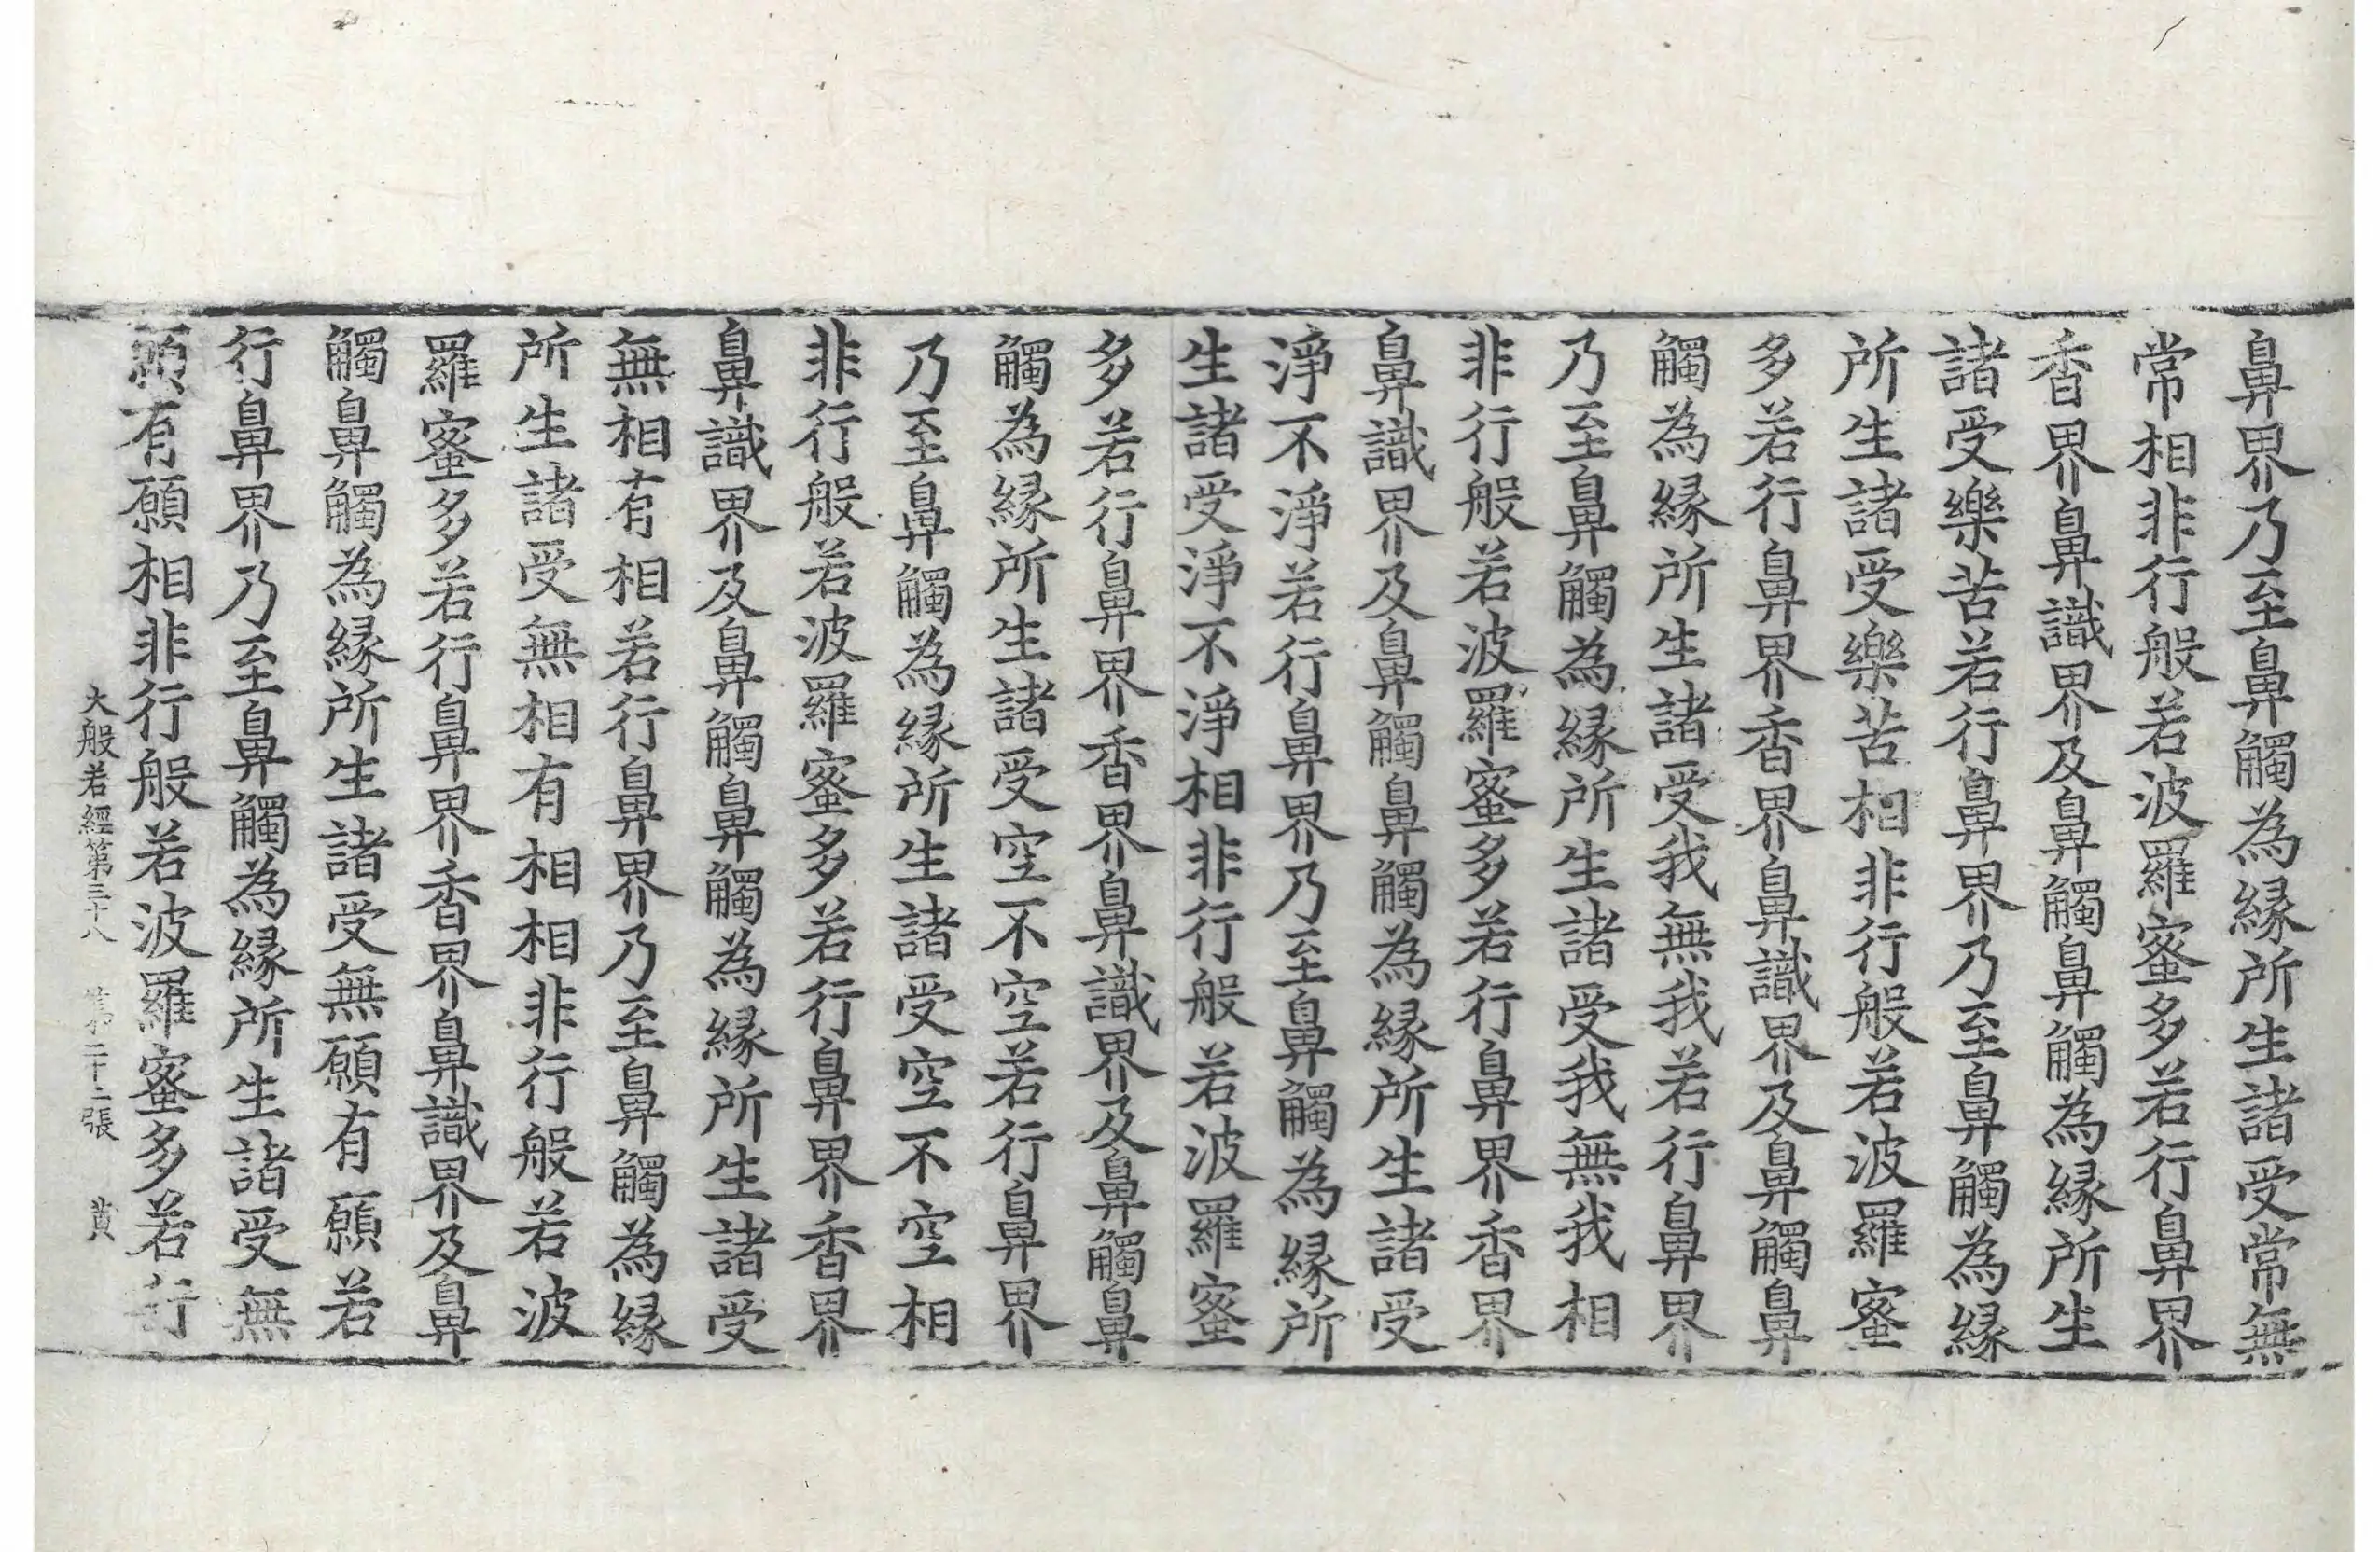 鼻界乃至鼻觸為緣所生諸受常無
常相非行般若波羅蜜多若行鼻界
香界鼻識界及鼻觸鼻觸為緣所生
諸受樂苦若行鼻界乃至鼻觸為緣
所生諸受樂苦相非行般若波羅蜜
多若行鼻界香界鼻識界及鼻觸鼻
觸為緣所生諸受我無我若行鼻界
乃至鼻觸為緣所生諸受我無我相
非行般若波羅蜜多若行鼻界香界
鼻識界及鼻觸鼻觸為緣所生諸受
淨不淨若行鼻界乃至鼻觸為緣所
生諸受淨不淨相非行般若波羅蜜
多若行鼻界香界鼻識界及鼻觸鼻
觸為緣所生諸受空不空若行鼻界
乃至鼻觸為緣所生諸受空不空相
非行般若波羅蜜多若行鼻界香界
鼻識界及鼻觸鼻觸為緣所生諸受
無相有相若行鼻界乃至鼻觸為緣
所生諸受無相有相相非行般若波
羅蜜多若行鼻界香界鼻識界及鼻
觸鼻觸為緣所生諸受無願有願若
行鼻界乃至鼻觸為緣所生諸受無
願有願相非行般若波羅蜜多若行
大般若經第三十八 第二十二張 黃